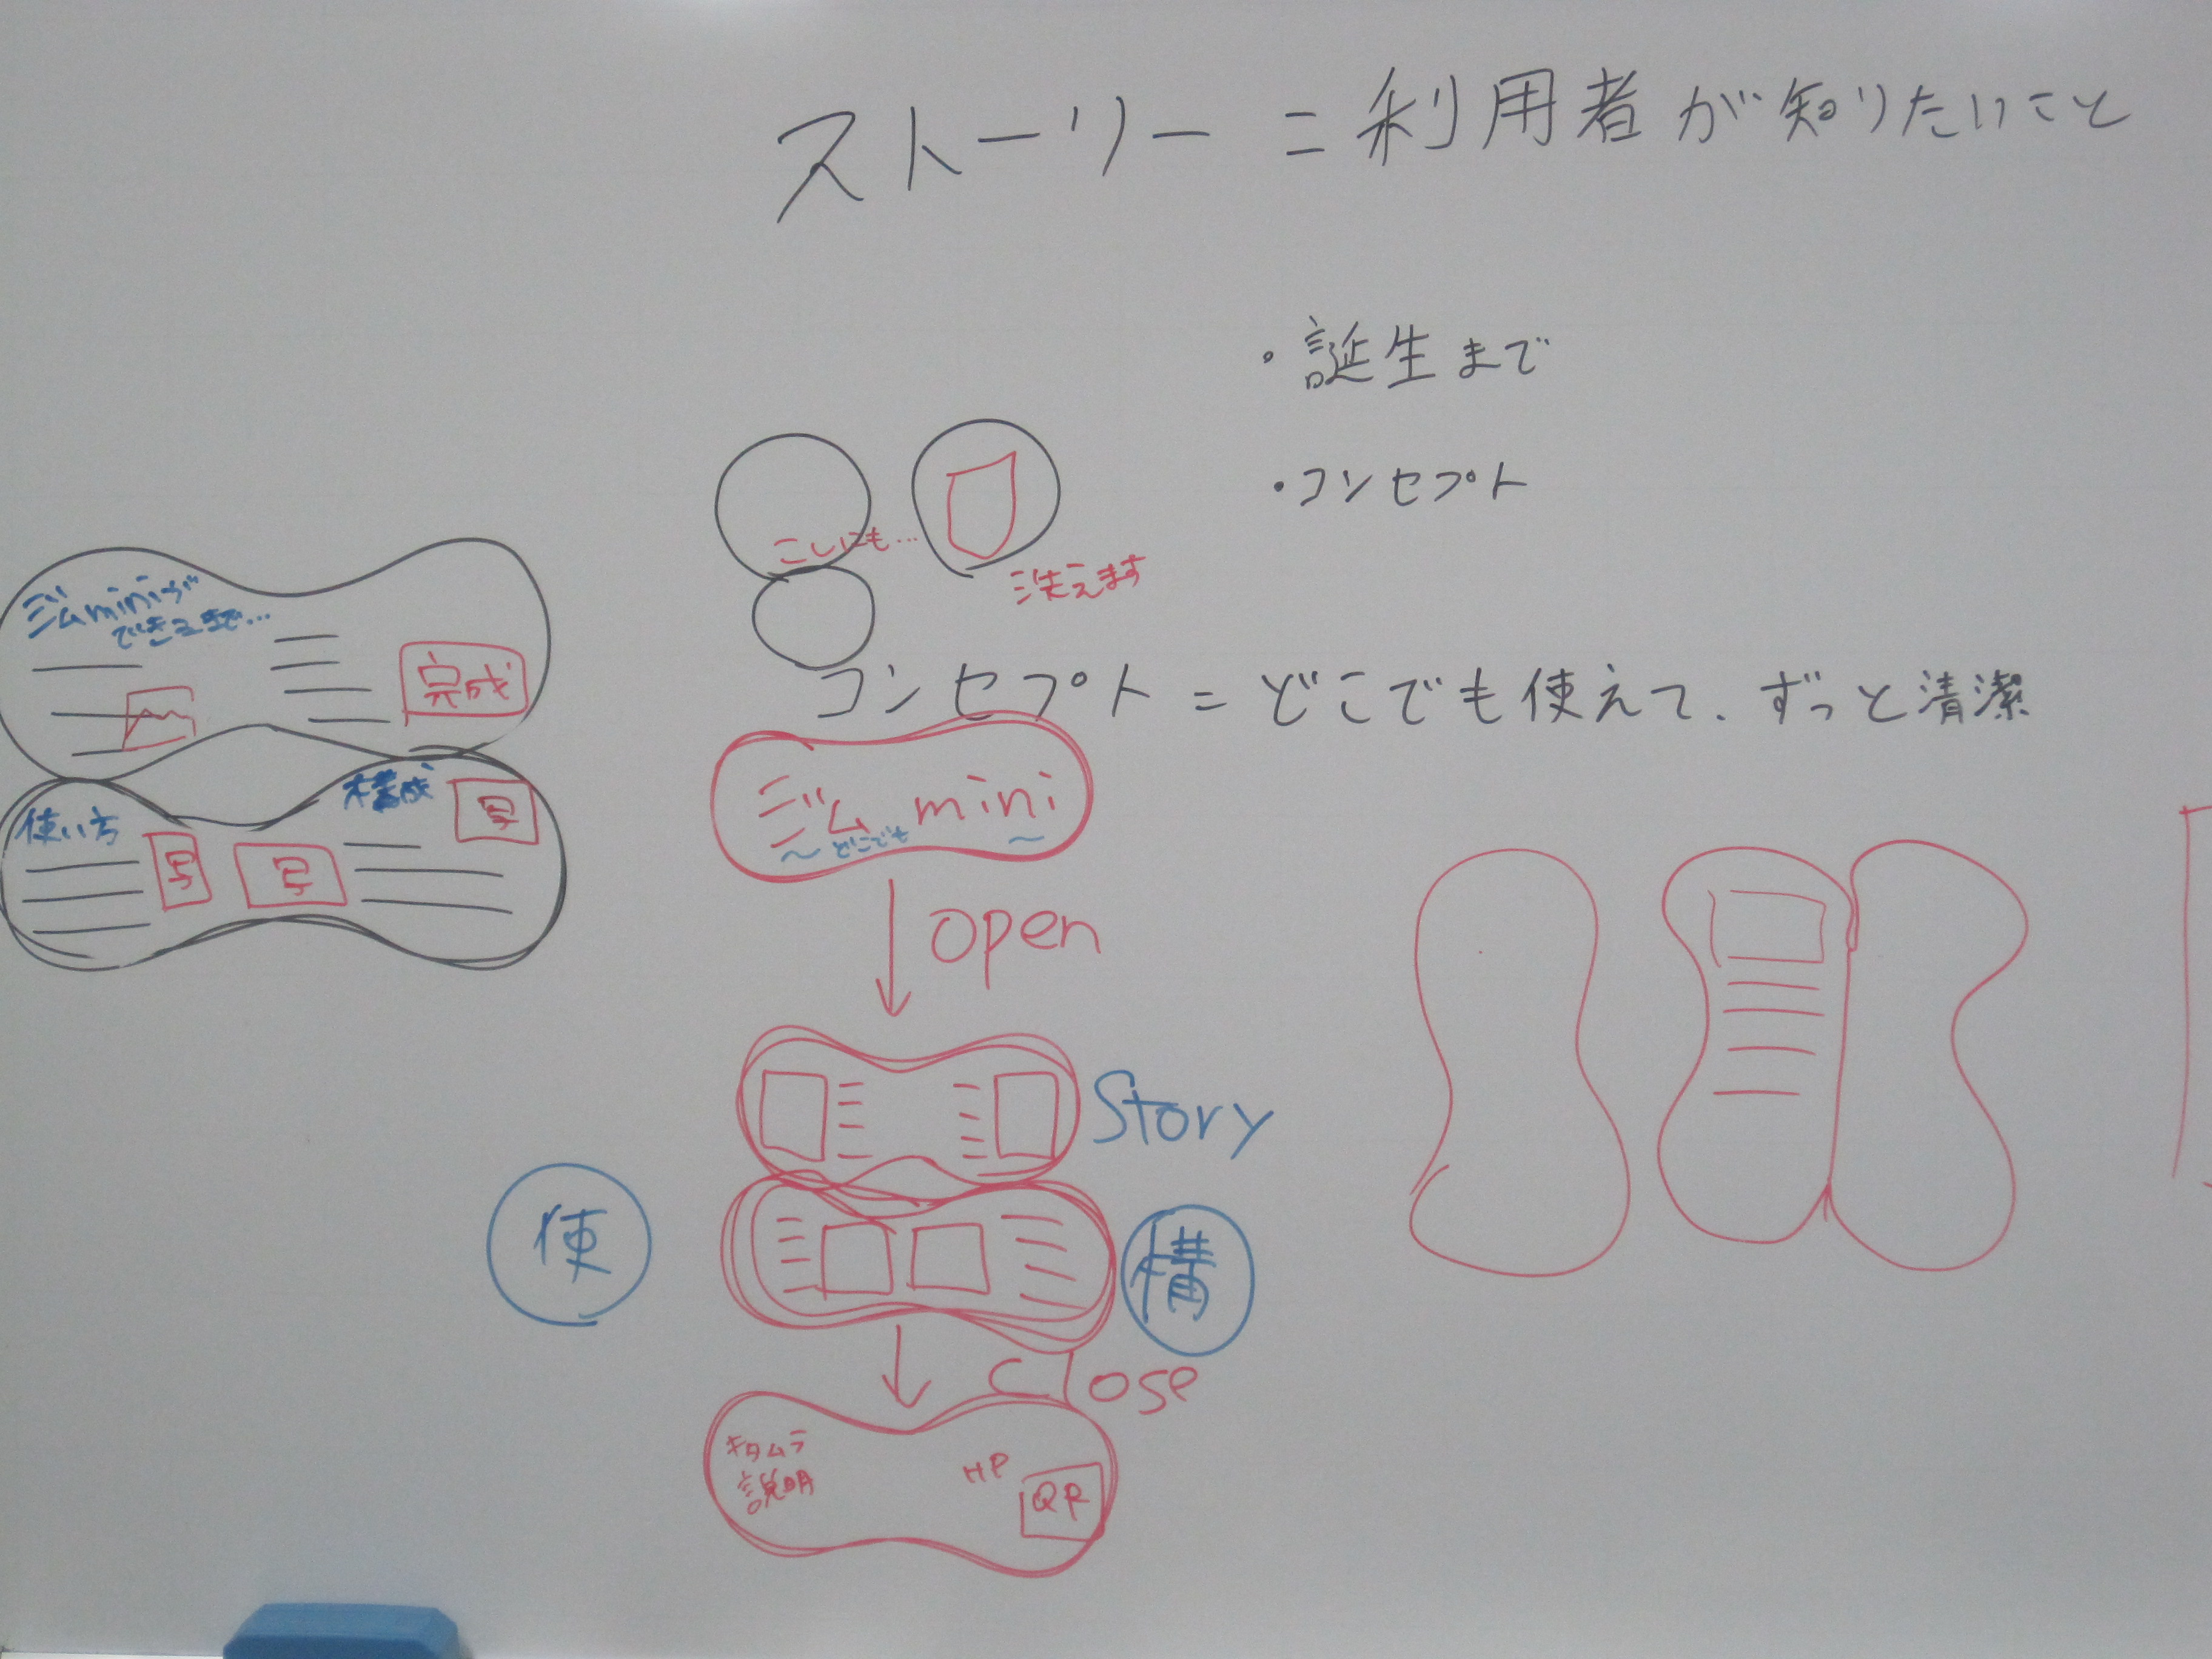 ストーリー=利用者が知りたいこと
・誕生まで
・コンセプト
こしにも…
洗えます
コンセプト=どこでも使えて、ずっと清潔
ジムminiが
できるまで…
完成
使い方
構成
写
写
写
ジムmini
～どこでも～
open
Story
使
構
Close
キタムラ
説明
HP
QR